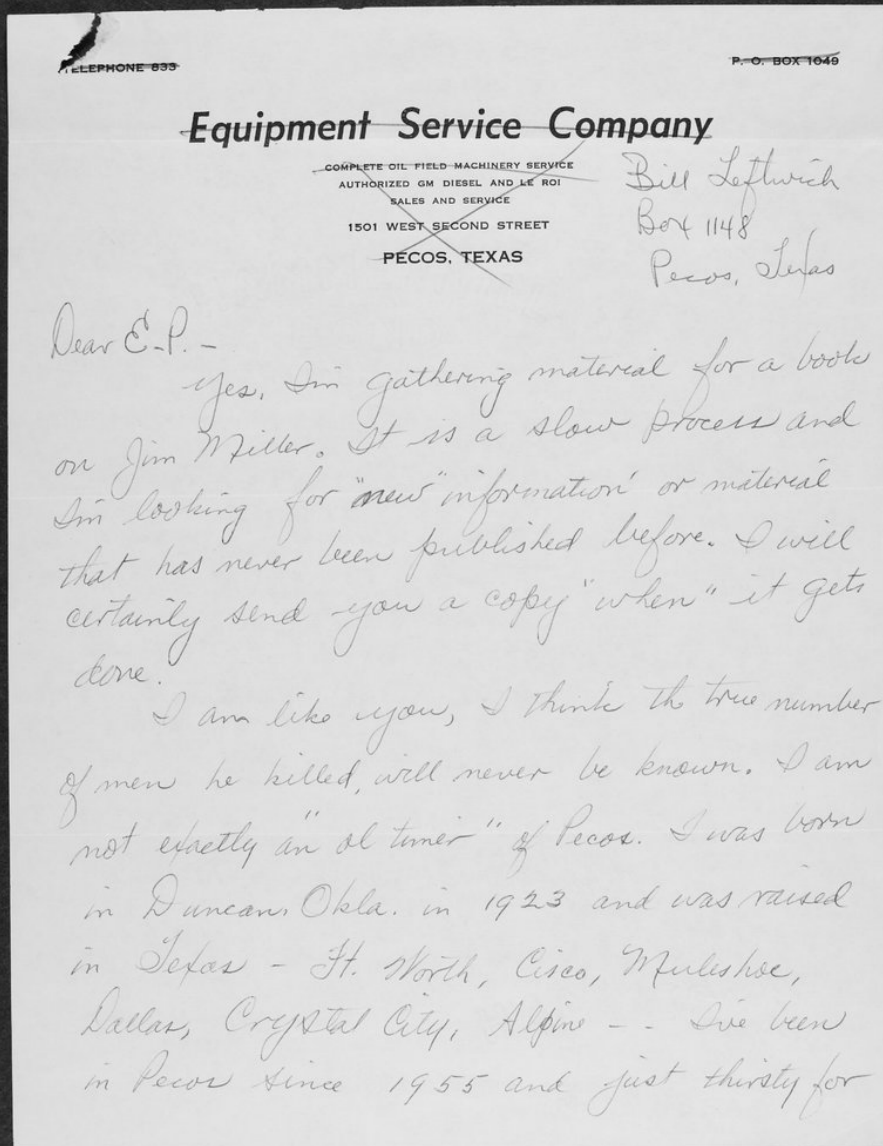 TELEPHONE 833
P. O. BOX 1049
Equipment Service Company
COMPLETE OIL FIELD MACHINERY SERVICE
AUTHORIZED GM DIESEL AND LE ROI
SALES AND SERVICE
1501 WEST SECOND STREET
PECOS, TEXAS
Bill Leftwich
Box 1148
Pecos, Texas
Dear E.P. -
Yes, I'm gathering material for a book
on Jim Miller. It is a slow process and
I'm looking for "new" information or material
that has never been published before. I will
certainly send you a copy "when" it gets
done.
I am like you, I think th true number
of men he killed, will never be known. I am
not exactly an "ol timer" of Pecos. I was born
in Duncan, Okla. in 1923 and was raised
in Texas - Ft. Worth, Cisco, Muleshoe,
Dallas, Crystal City, Alpine - - I've been
in Pecos since 1955 and just thirsty for